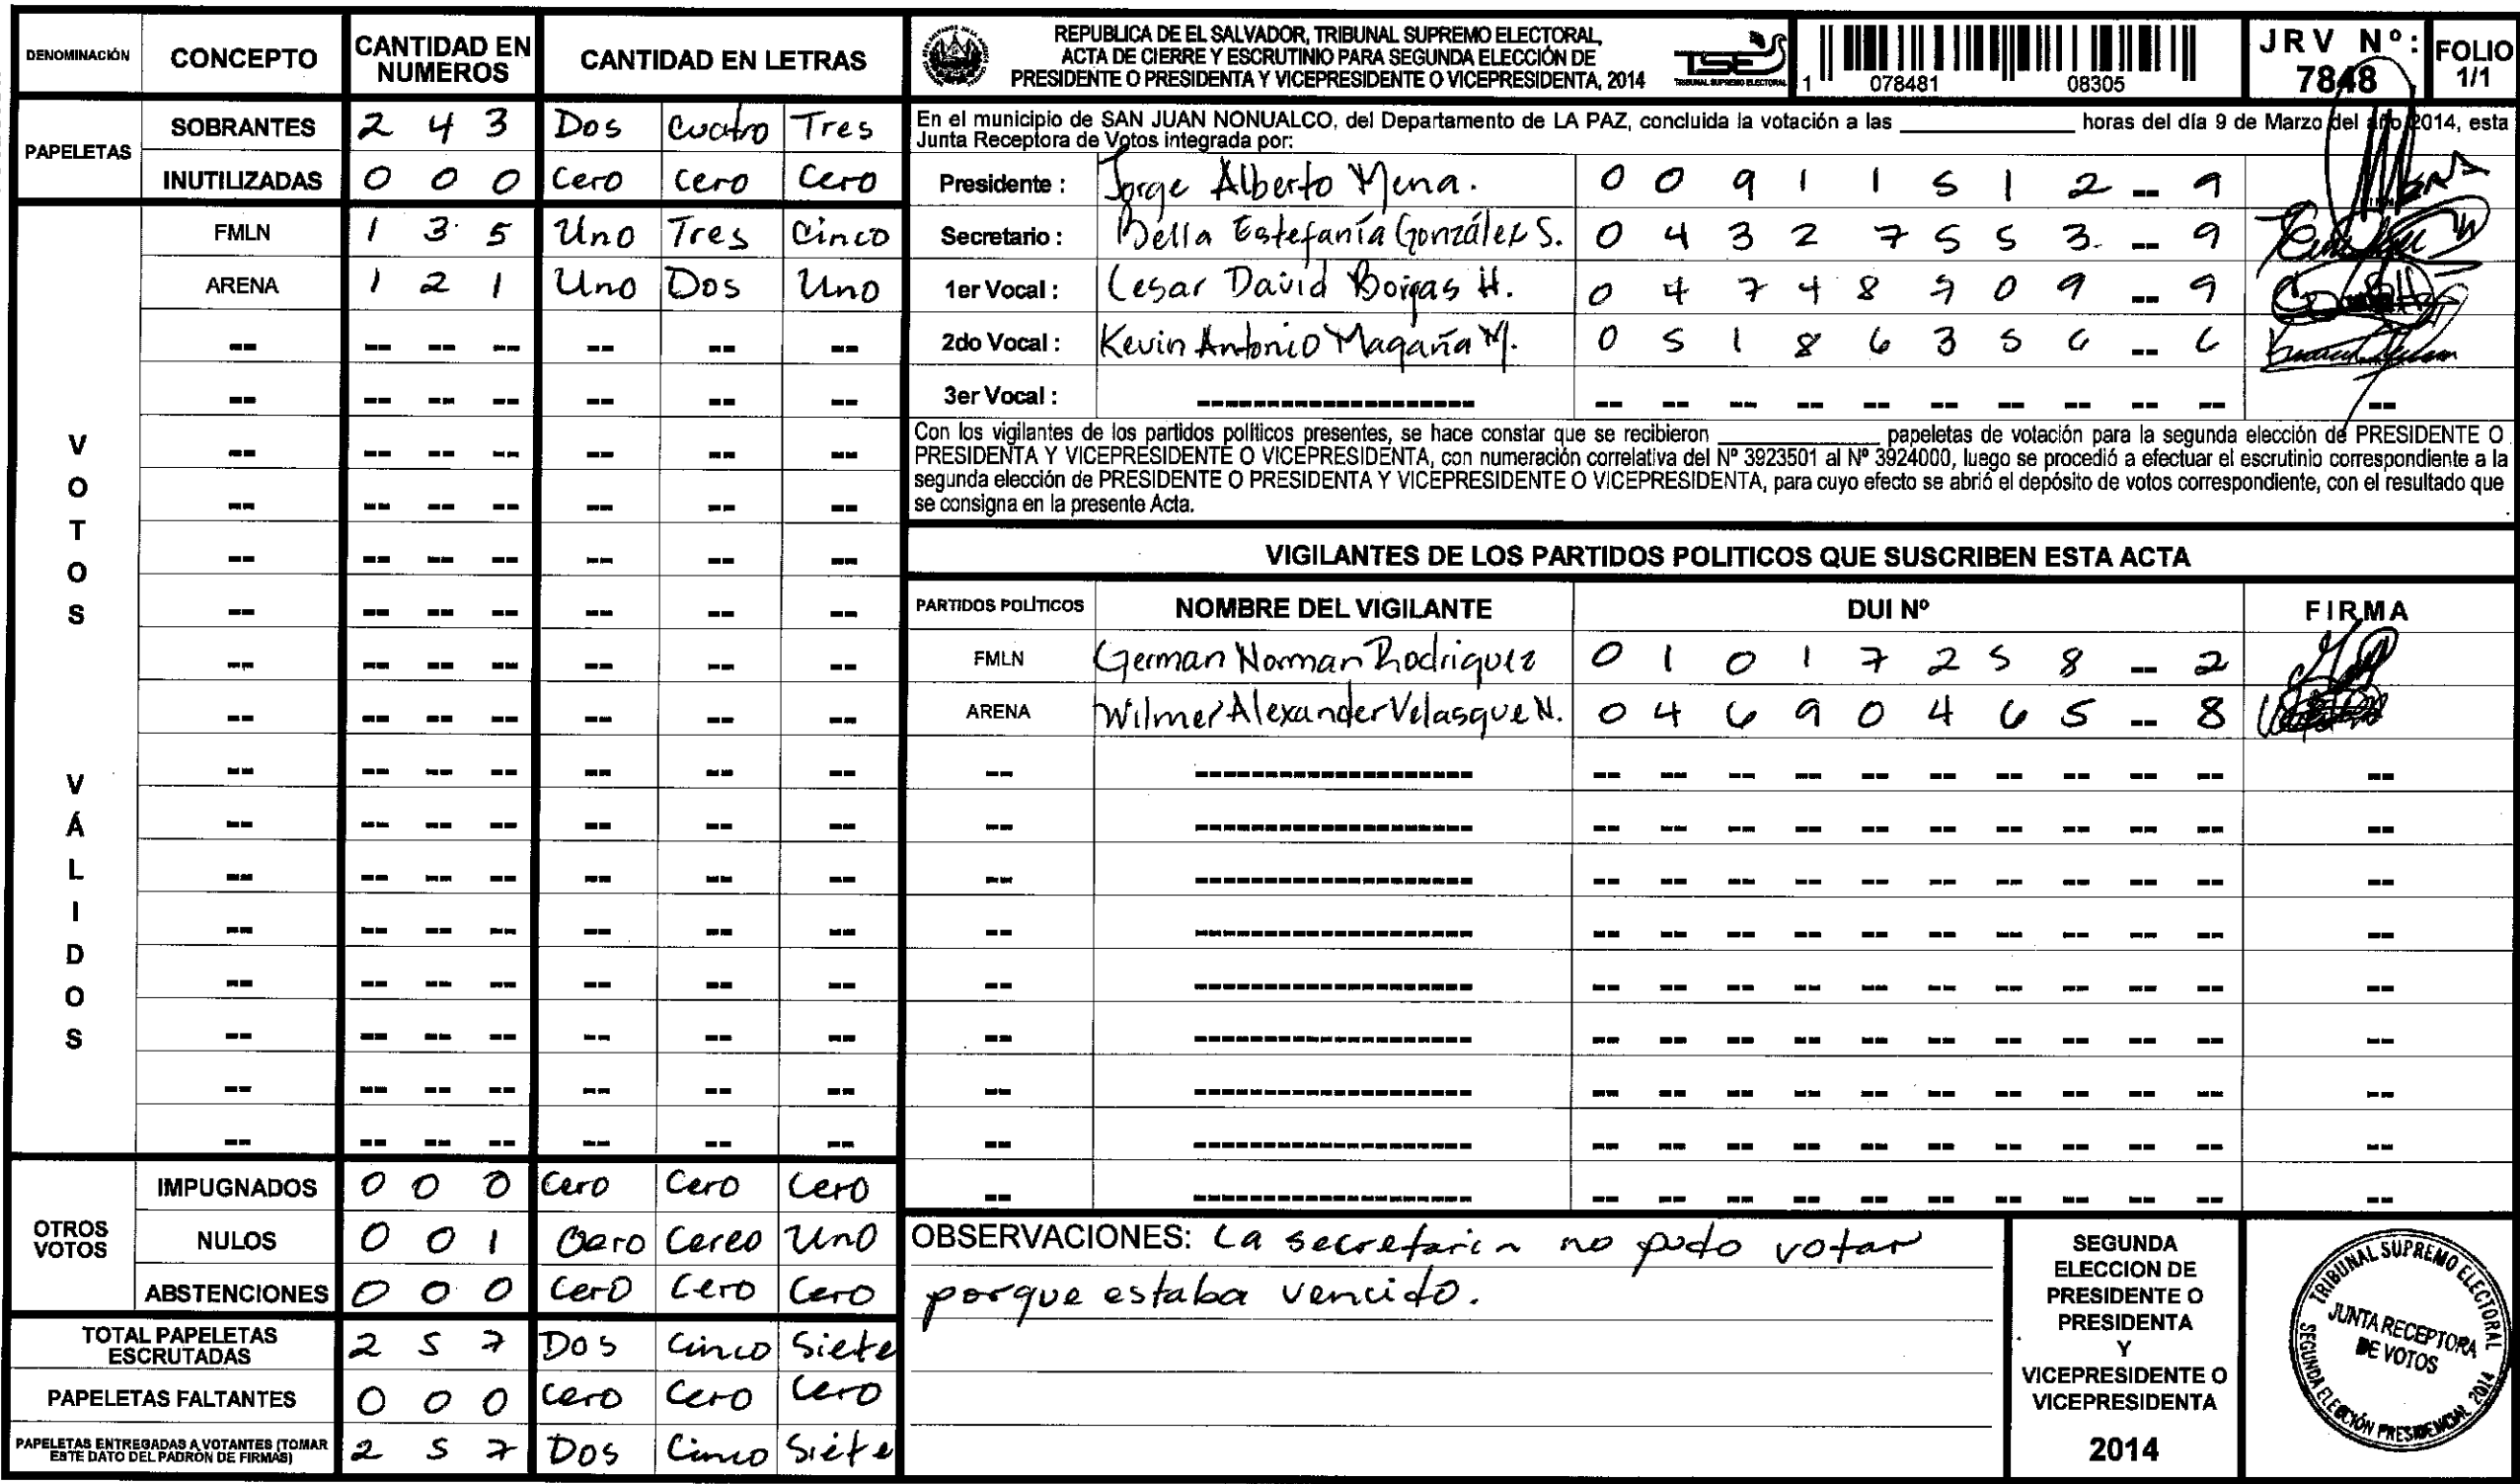 DENOMINACIÓN CONCEPTO CANTIDAD EN NUMEROS CANTIDAD EN LETRAS
PAPELETAS
SOBRANTES 2 4 3 Dos Cuatro Tres
INUTILIZADAS 0 0 0 Cero Cero Cero
VOTOS VÁLIDOS
FMLN 1 3 5 Uno Tres Cinco
ARENA 1 2 1 Uno Dos Uno
OTROS VOTOS
IMPUGNADOS 0 0 0 Cero Cero Cero
NULOS 0 0 1 Cero Cereo Uno
ABSTENCIONES 0 0 0 Cero Cero Cero
TOTAL PAPELETAS ESCRUTADAS 2 5 7 Dos Cinco Siete
PAPELETAS FALTANTES 0 0 0 Cero Cero Cero
PAPELETAS ENTREGADAS A VOTANTES (TOMAR ESTE DATO DEL PADRON DE FIRMAS) 2 5 7 Dos Cinco Siete
REPUBLICA DE EL SALVADOR, TRIBUNAL SUPREMO ELECTORAL,
ACTA DE CIERRE Y ESCRUTINIO PARA SEGUNDA ELECCIÓN DE
PRESIDENTE O PRESIDENTA Y VICEPRESIDENTE O VICEPRESIDENTA, 2014
TSE
TRIBUNAL SUPREMO ELECTORAL
1 078481 08305
JRV Nº: 7848
FOLIO 1/1
En el municipio de SAN JUAN NONUALCO, del Departamento de LA PAZ, concluida la votación a las ____ horas del día 9 de Marzo del año 2014, esta
Junta Receptora de Votos integrada por:
Presidente : Jorge Alberto Mena. 0 0 9 1 1 5 1 2 -- 9
Secretario : Della Estefanía González S. 0 4 3 2 7 5 5 3 -- 9
1er Vocal : Cesar David H. 0 4 7 4 8 9 0 9 -- 9
2do Vocal : Kevin Antonio Magaña M. 0 5 1 8 6 3 5 6 -- 6
3er Vocal :
Con los vigilantes de los partidos políticos presentes, se hace constar que se recibieron ____ papeletas de votación para la segunda elección de PRESIDENTE O
PRESIDENTA Y VICEPRESIDENTE O VICEPRESIDENTA, con numeración correlativa del Nº 3923501 al Nº 3924000, luego se procedió a efectuar el escrutinio correspondiente a la
segunda elección de PRESIDENTE O PRESIDENTA Y VICEPRESIDENTE O VICEPRESIDENTA, para cuyo efecto se abrió el depósito de votos correspondiente, con el resultado que
se consigna en la presente Acta.
VIGILANTES DE LOS PARTIDOS POLITICOS QUE SUSCRIBEN ESTA ACTA
PARTIDOS POLÍTICOS NOMBRE DEL VIGILANTE DUI Nº FIRMA
FMLN German Norman Rodriguez 0 1 0 1 7 2 5 8 -- 2
ARENA Wilmer Alexander Velasque N. 0 4 6 9 0 4 6 5 -- 8
OBSERVACIONES: La secretaria no pudo votar
porque estaba vencido.
SEGUNDA
ELECCION DE
PRESIDENTE O
PRESIDENTA
Y
VICEPRESIDENTE O
VICEPRESIDENTA
2014
TRIBUNAL SUPREMO ELECTORAL
JUNTA RECEPTORA
DE VOTOS
SEGUNDA ELECCIÓN PRESIDENCIAL 2014